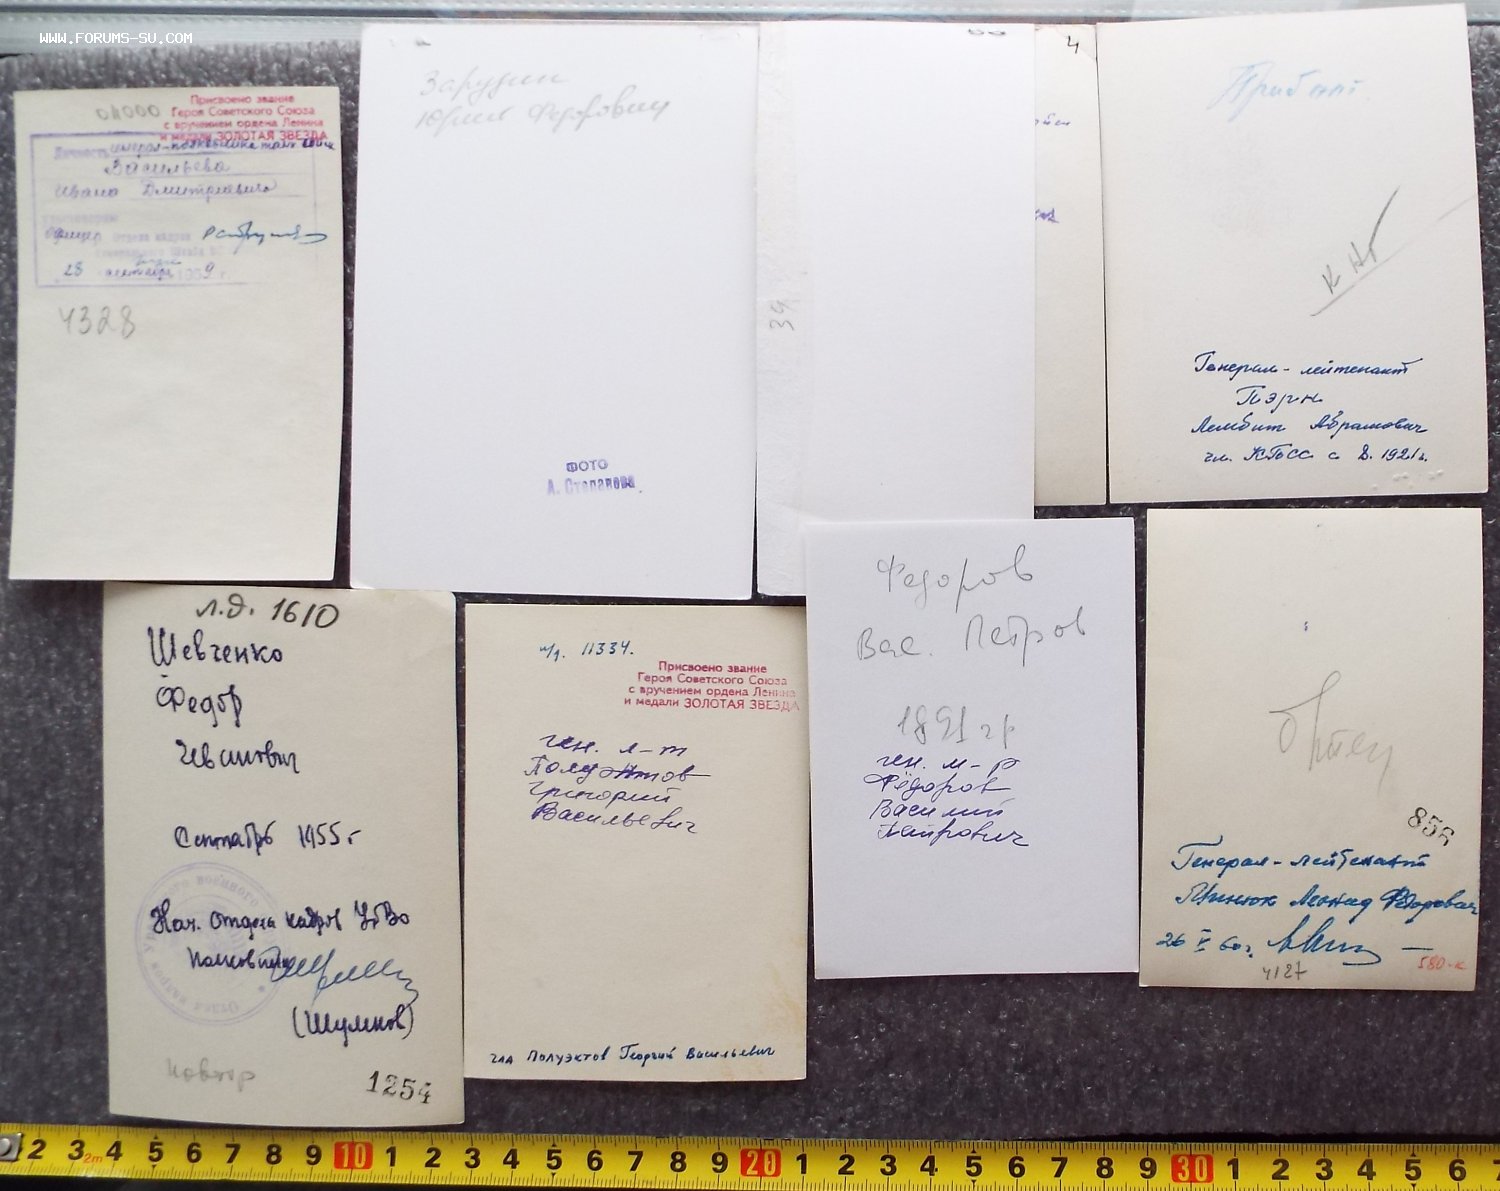 WWW.FORUMS-SU.COM
Присвоено звание
Героя Советского Союза
с вручением ордена Ленина
и медали ЗОЛОТАЯ ЗВЕЗДА
Личность
Васильева
Ивана Дмитриевича
Отдела кадров
28 сентября 1959 г.
4328
Зарудин
Юрий Федорович
ФОТО
А. Степанова
39
4
Прибалт.
К НГ
Генерал-лейтенант
Пэрн
Лембит Абрамович
чл. КПСС с 2.1921г.
л.д. 1610
Шевченко
Федор
Иванович
Сентябрь 1955г
Нач. Отдела кадров УрВО
Полковник
(Шумков)
повтор
1254
н/д. 11334.
Присвоено звание
Героя Советского Союза
с вручением ордена Ленина
и медали ЗОЛОТАЯ ЗВЕЗДА
ген. л-т
Полуэктов
Григорий
Васильевич
гла Полуэктов Георгий Васильевич
Федоров
Вас. Петров
1891 гр
ген. м-р
Фёдоров
Василий
Петрович
856
Генерал-лейтенант
Минюк Леонид Федорович
26 V 60г.
4127
580-к
2 3 2m 4 5 6 7 8 9 10 1 2 3 4 5 6 7 8 9 20 1 2 3 4 5 6 7 8 9 30 1 2 3 4 5 6 7